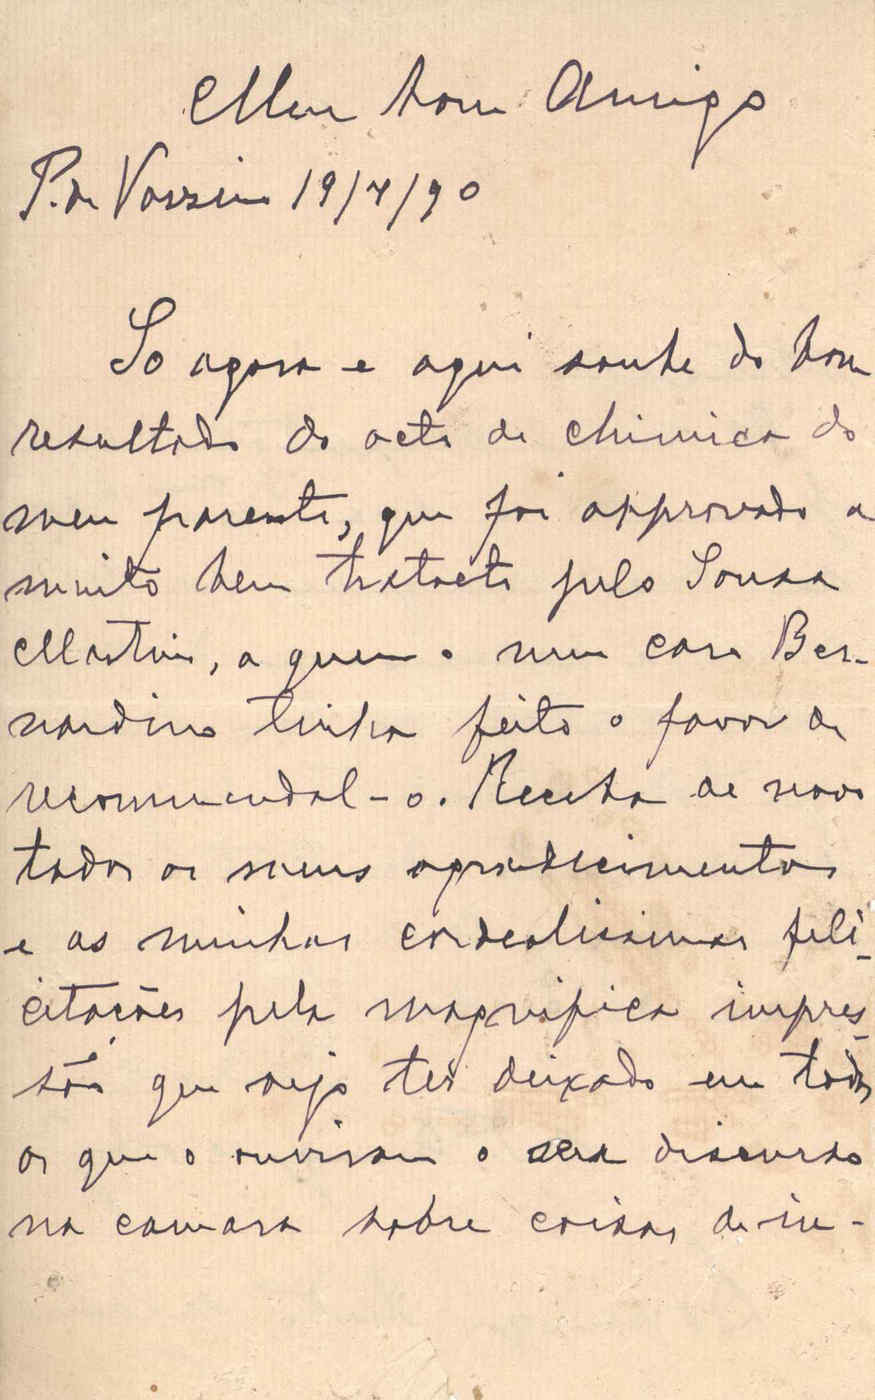 Meu bom Amigo
P. de Varzim 19/7/90
So agora e aqui soube do bom
resultado do acto de chimica do
meu parente, que foi approvado e
muito bem tratado pelo Sousa
Martins, a quem o meu caro Ber-
nardino tinha feito o favor de
recommendal-o. Receba de novo
todos os meus agradecimentos
e as minhas cordealissimas feli-
citações pela magnifica impres-
são que vejo ter deixado em todos
os que o ouviram o seu discurso
na camara sobre coisas de in-